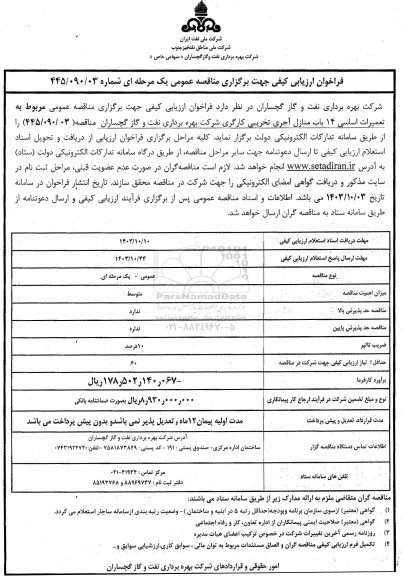 شرکت ملی نفت ایران
شرکت ملی مناطق نفتخیز جنوب
شرکت بهره برداری نفت و گاز گچساران « سهامی خاص »
فراخوان ارزیابی کیفی جهت برگزاری مناقصه عمومی یک مرحله ای شماره ۴۴۵/۰۹۰/۰۳
شرکت بهره برداری نفت و گاز گچساران در نظر دارد فراخوان ارزیابی کیفی جهت برگزاری مناقصه عمومی مربوط به
تعمیرات اساسی ۱۴ باب منازل آجری تخریبی کارگری شرکت بهره برداری نفت و گاز گچساران مناقصه( ۴۴۵/۰۹۰/۰۳ ) را
از طریق سامانه تدارکات الکترونیکی دولت برگزار نماید. کلیه مراحل برگزاری فراخوان ارزیابی از دریافت و تحویل اسناد
استعلام ارزیابی کیفی تا ارسال دعوتنامه جهت سایر مراحل مناقصه، از طریق درگاه سامانه تدارکات الکترونیکی دولت (ستاد)
به آدرس www.setadiran.ir انجام خواهد شد. لازم است مناقصه‌گران در صورت عدم عضویت قبلی، مراحل ثبت نام در
سایت مذکور و دریافت گواهی امضای الکترونیکی را جهت شرکت در مناقصه محقق سازند. تاریخ انتشار فراخوان در سامانه
تاریخ ۱۴۰۳/۱۰/۰۳ می باشد. اطلاعات و اسناد مناقصه عمومی پس از برگزاری فرآیند ارزیابی کیفی و ارسال دعوتنامه از
طریق سامانه ستاد به مناقصه گران ارسال خواهد شد.
مهلت دریافت اسناد استعلام ارزیابی کیفی ۱۴۰۳/۱۰/۱۰
مهلت ارسال پاسخ استعلام ارزیابی کیفی ۱۴۰۳/۱۰/۲۴
نوع مناقصه عمومی - یک مرحله ای
میزان اهمیت مناقصه متوسط
مناقصه حد پذیرش بالا ندارد
مناقصه حد پذیرش پایین ندارد
ضریب تاثیر ۱۰درصد
حداقل امتیاز ارزیابی کیفی جهت شرکت در مناقصه ۶۰
برآورد کارفرما ۱۷۸٫۵۰۲٫۱۴۰٫۰۶۷- ریال
نوع و مبلغ تضمین شرکت در فرآیند ارجاع کار پیمانکاری ۸٫۹۳۰٫۰۰۰٫۰۰۰ ریال بصورت ضمانتنامه بانکی
مدت قرارداد، تعدیل و پیش پرداخت مدت اولیه پیمان۱۲ماه و تعدیل پذیر نمی باشدو بدون پیش پرداخت می باشد
اطلاعات تماس دستگاه مناقصه گزار آدرس شرکت بهره برداری نفت و گاز گچساران
ساختمان اداره مرکزی- صندوق پستی : ۱۹۱ - کد پستی :
تلفن های سامانه ستاد مرکز تماس : ۴۱۹۳۴-۰۲۱
دفتر ثبت نام : ۸۸۹۶۹۷۳۷ و ۸۵۱۹۳۷۶۸
ParsNamadData
۰۲۱-۸۸۳۴۹۶۷۰-۵
مناقصه گران متقاضی ملزم به ارائه مدارک زیر از طریق سامانه ستاد می باشند:
۱) گواهی (معتبر) ازسوی سازمان برنامه وبودجه(حداقل رتبه ۵ در ابنیه و ساختمان )– وضعیت رتبه بندی ازسامانه ساجار استعلام می گردد.
۲) گواهی (معتبر) صلاحیت ایمنی پیمانکاران از اداره تعاون، کار و رفاه اجتماعی
۳) روزنامه رسمی آخرین تغییرات شرکت در خصوص ترکیب اعضای هیات مدیره
۴) تکمیل فرم ارزیابی کیفی مناقصه گران و الصاق مستندات مربوط به توان مالی ، سوابق کاری،ارزشیابی سوابق و...
امور حقوقی و قراردادهای شرکت بهره برداری نفت و گاز گچساران